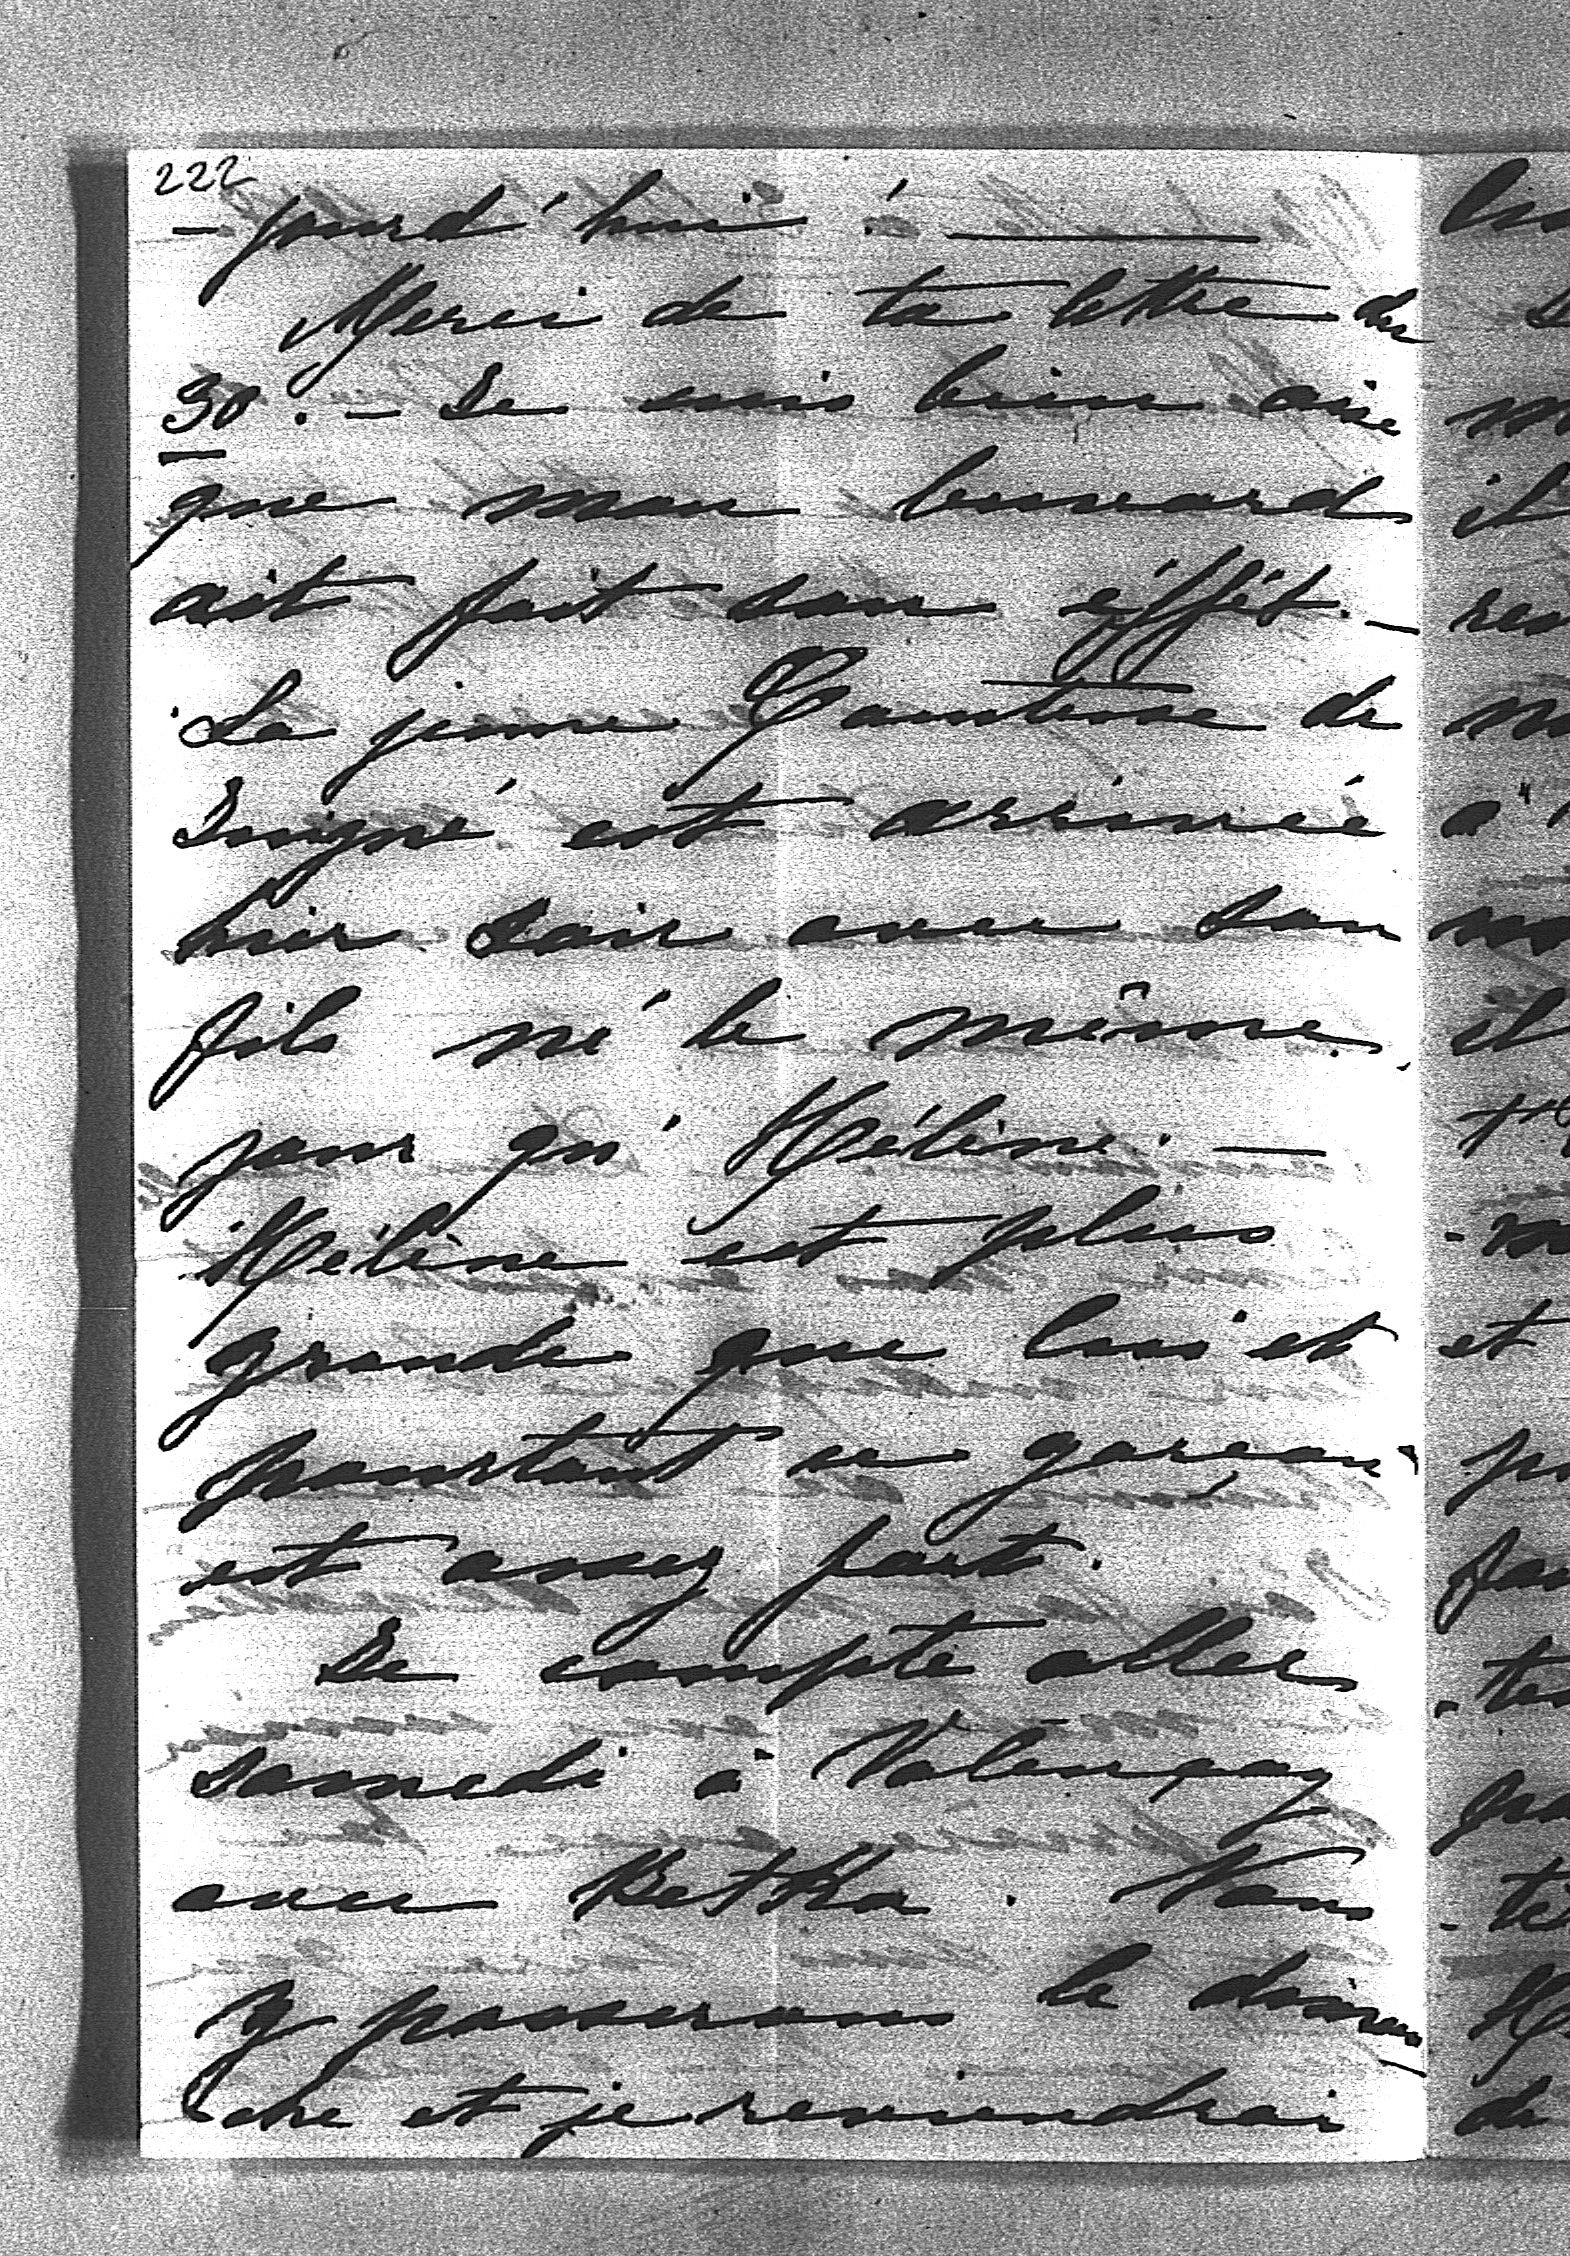 222
- jourd'hui ! —
Merci de ta lettre du
30. - Je suis bien aise
que mon buvard
ait fait son éffet. -
La jeune Comtesse de
est arrivée
hier soir avec son
fils né le même
jour qu'Hélène. -
Hélène est plus
grande que lui et
pourtant ce garçon
est assez fort.
Je compte aller
samedi à Valençay
avec Betka. Nous
y passerons le diman
- che et je reviendrai